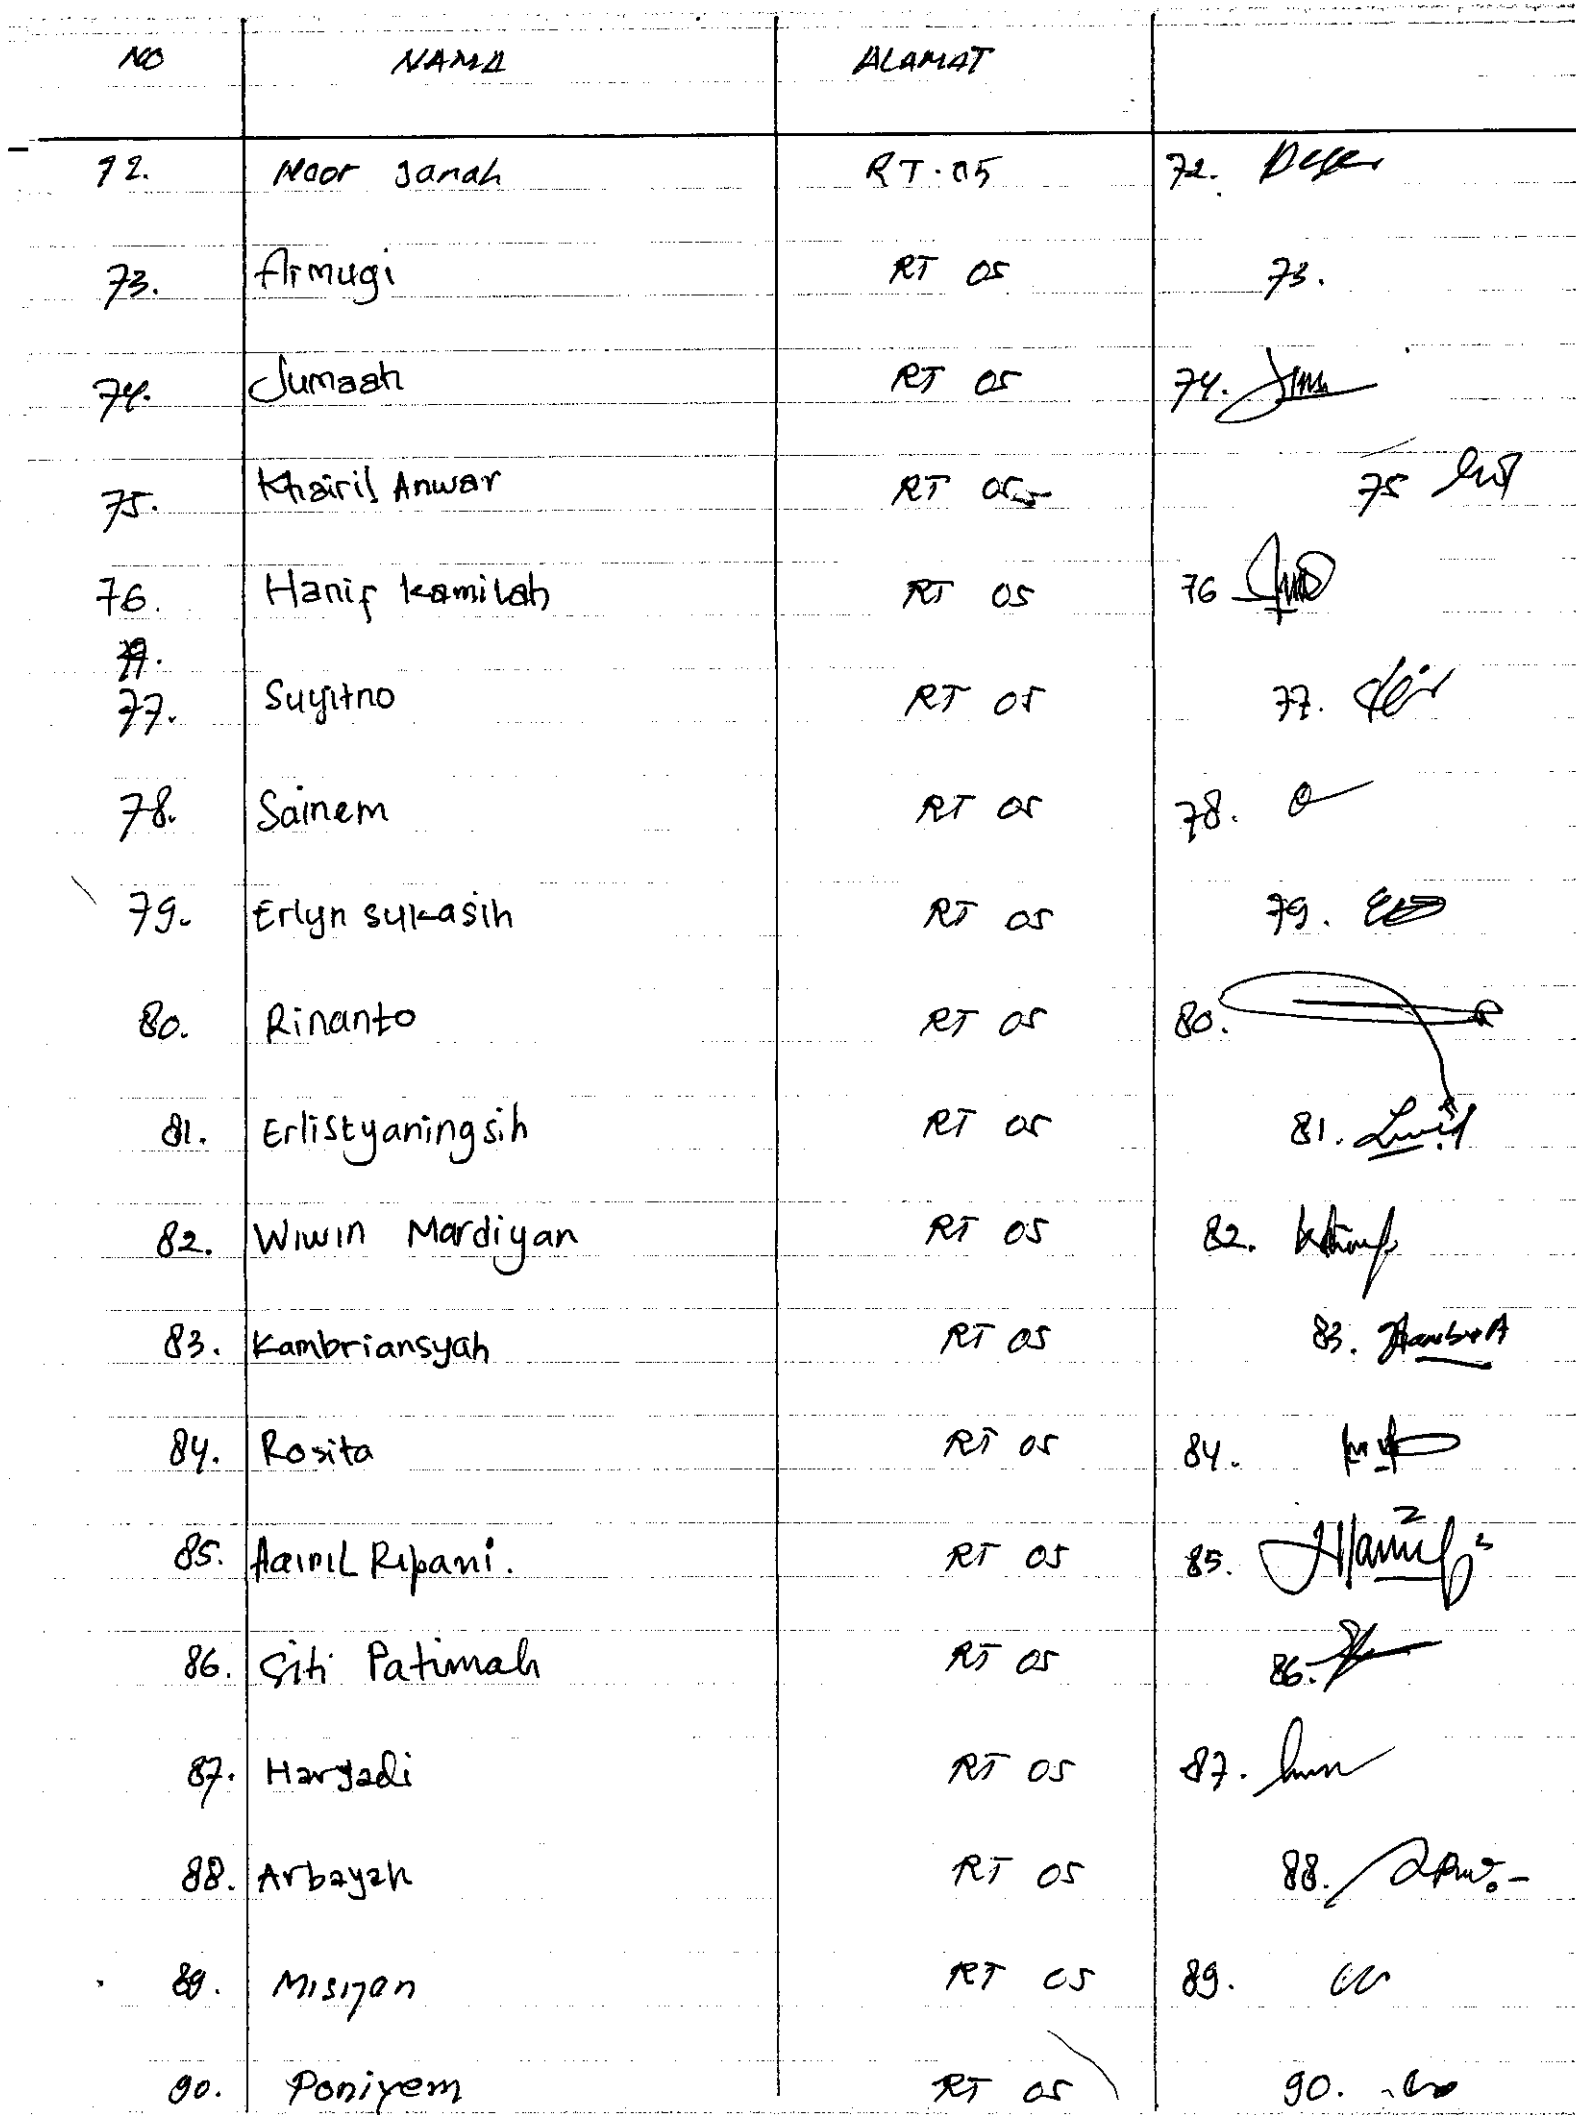 NO NAMA ALAMAT
72. Noor Janah RT.05 72.
73. Armugi RT 05 73.
74. Jumaah RT 05 74.
75. Khairil Anwar RT 05 75
76. Hanif Kamilah RT 05 76
77. Suyitno RT 05 77.
78. Sainem RT 05 78.
79. Erlyn Sukasih RT 05 79.
80. Rinanto RT 05 80.
81. Erlistyaningsih RT 05 81.
82. Wiwin Mardiyan RT 05 82.
83. Kambriansyah RT 05 83.
84. Rosita RT 05 84.
85. Ripani. RT 05 85.
86. Siti Patimah RT 05 86.
87. Haryadi RT 05 87.
88. Arbayah RT 05 88.
89. Misiyan RT 05 89.
90. Poniyem RT 05 90.